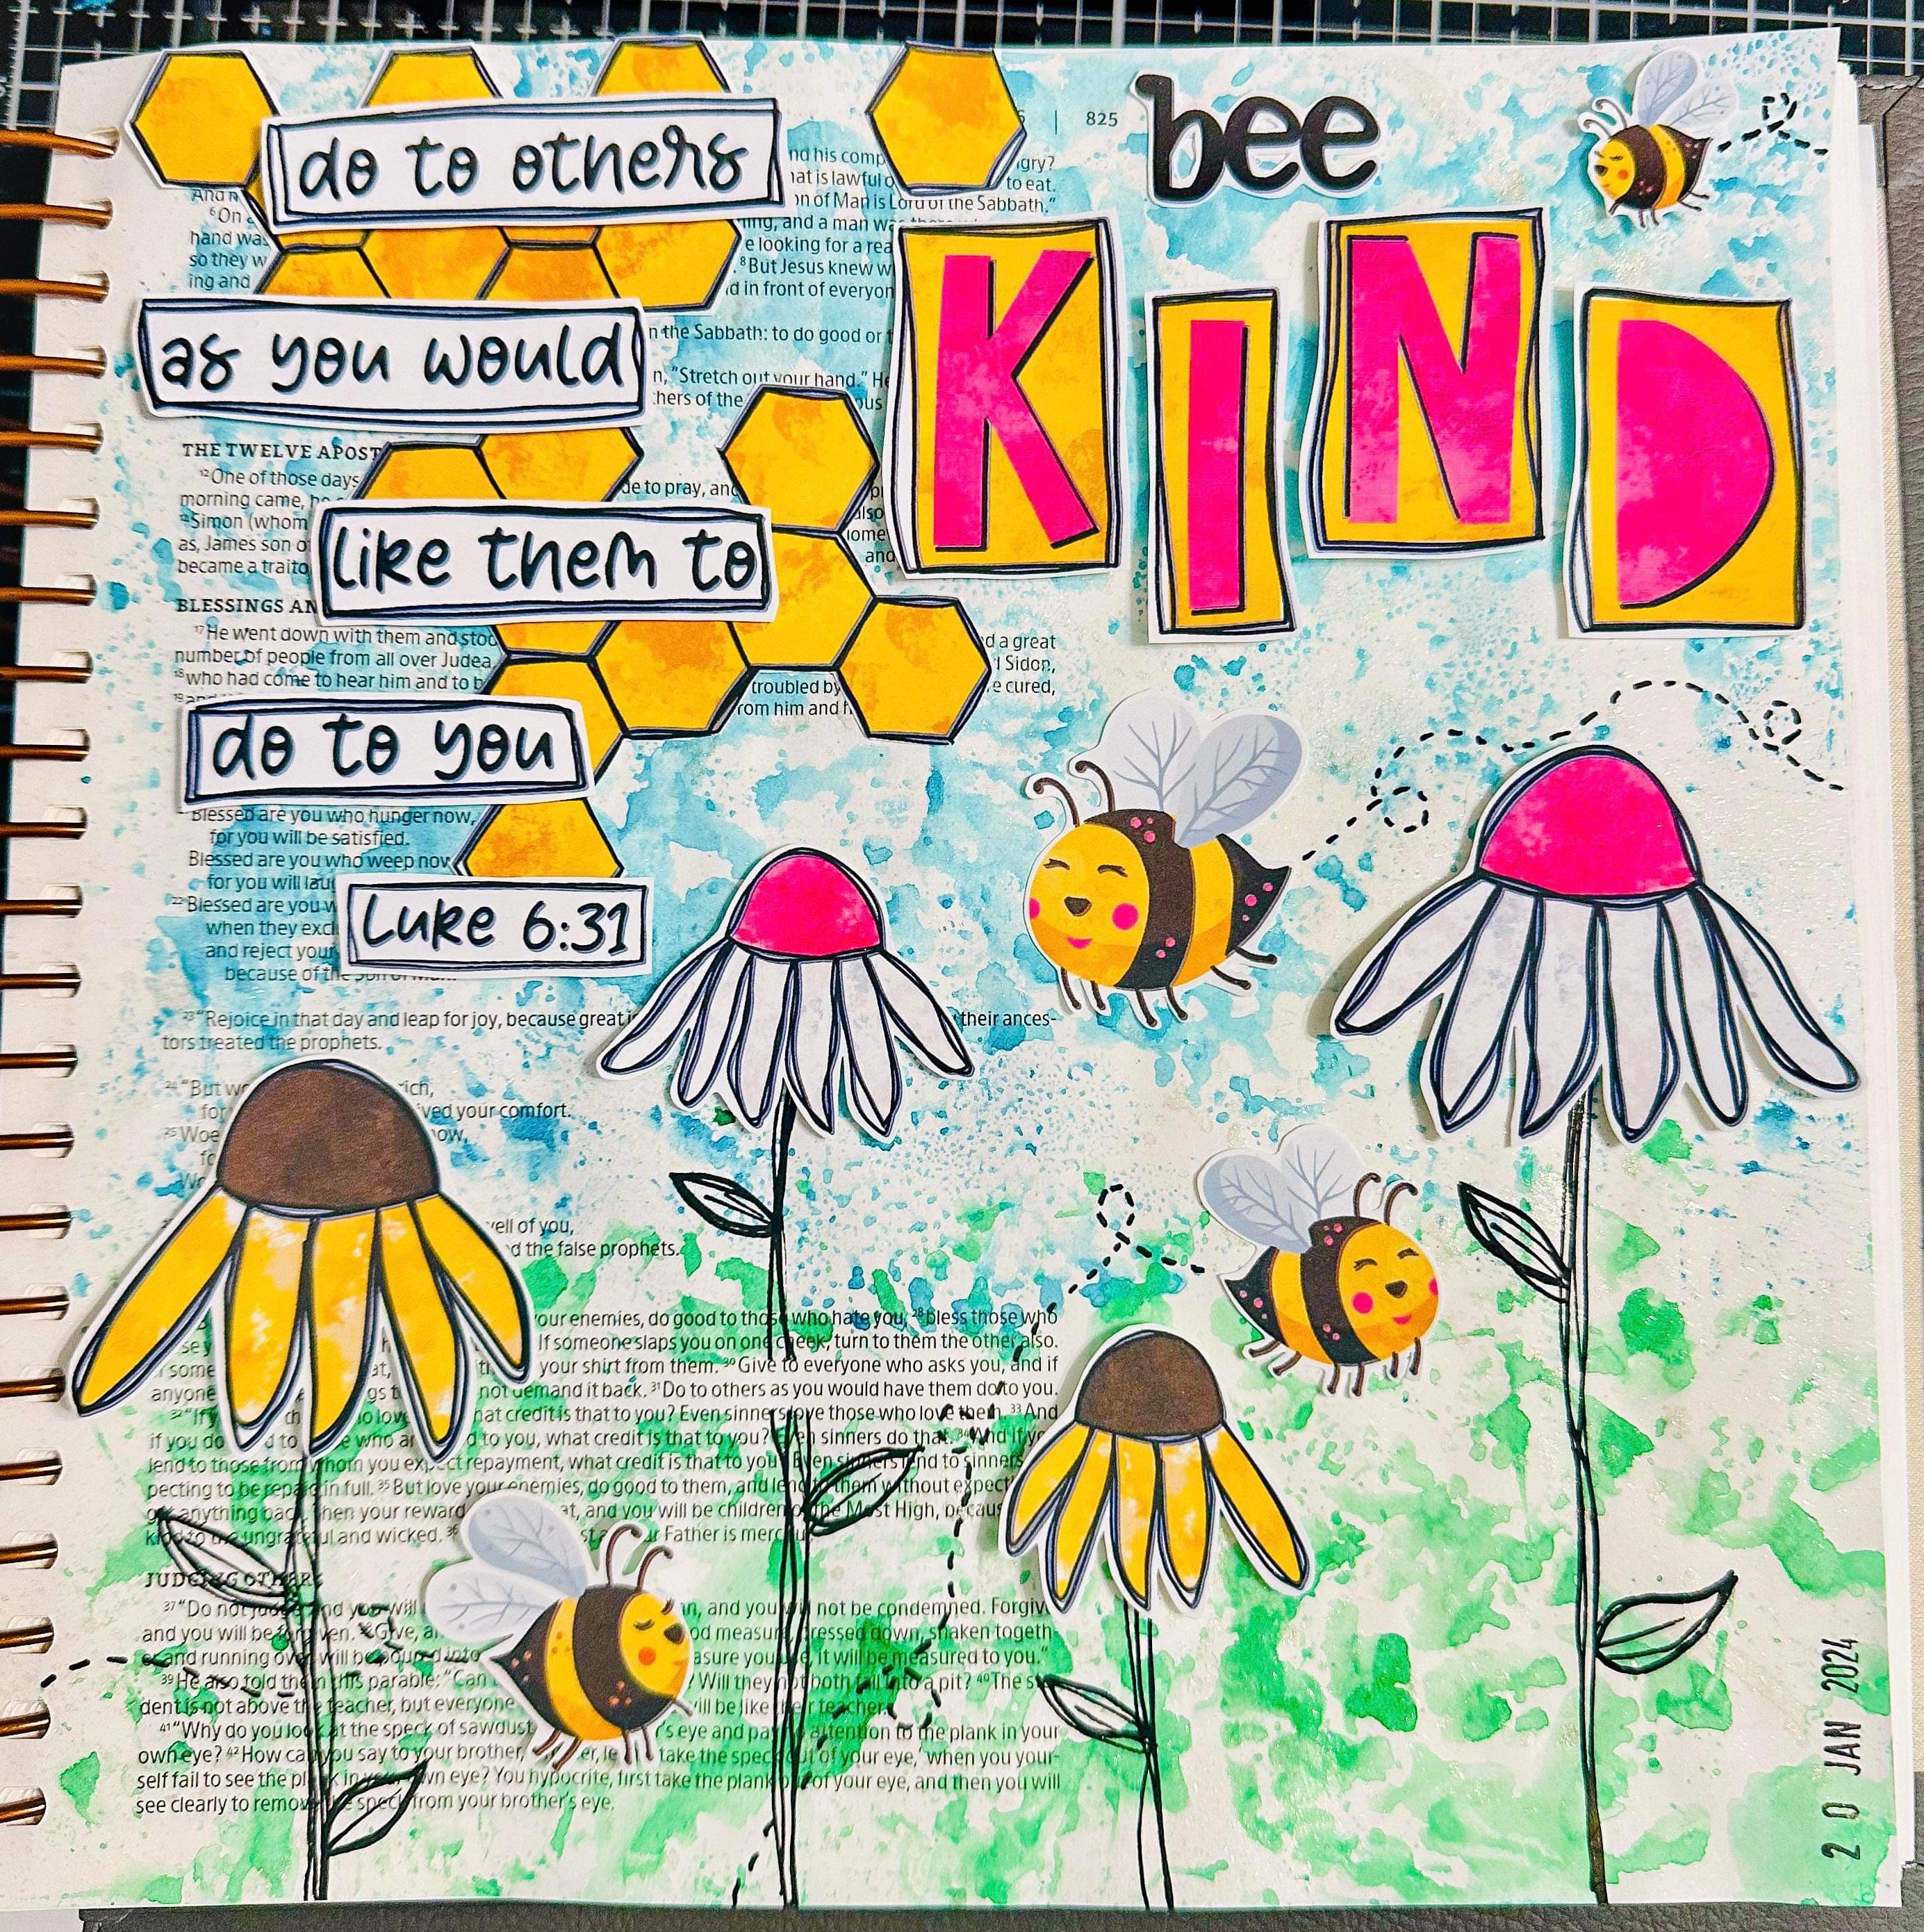 do to others
as you would
like them to
do to you
Luke 6:31
bee
KIND
| 825
And
nd his comp
gry?
hat is lawful
to eat.
on of Man is Lord of the Sabbath."
6 On
ing, and a man was
hand was
e looking for a rea
so they w
. 8 But Jesus knew w
ing and
d in front of everyon
n the Sabbath: to do good or
n, "Stretch out your hand." He
hers of the
ous
THE TWELVE APOST
12 One of those days
de to pray, and
morning came, he
also
Simon (whom
as, James son o
and
became a traito
BLESSINGS AN
17 He went down with them and stoo
d a great
number of people from all over Judea,
Sidon,
18 who had come to hear him and to b
troubled by
e cured,
19 and
rom him and
Blessed are you who hunger now,
for you will be satisfied.
Blessed are you who weep now
for you will lau
22 Blessed are you w
when they excl
and reject your
because of the Son of Man.
23 "Rejoice in that day and leap for joy, because great is
their ances-
tors treated the prophets.
24 "But wo
rich,
for
ved your comfort.
25 Woe
now,
fo
Wo
vell of you,
d the false prophets.
your enemies, do good to those who hate you, 28 bless those who
If someone slaps you on one cheek, turn to them the other also.
some
at,
your shirt from them. 30 Give to everyone who asks you, and if
anyone
gs
not demand it back. 31 Do to others as you would have them do to you.
32 "If y
lov
hat credit is that to you? Even sinners love those who love them. 33 And
if you do
d to
e who ar
d to you, what credit is that to you? Even sinners do that. 34 And if yo
lend to those from whom you expect repayment, what credit is that to you? Even sinners lend to sinners
pecting to be repaid in full. 35 But love your enemies, do good to them, and lend to them without expect
get anything back. Then your reward
at, and you will be children of the Most High, becaus
kind to the ungrateful and wicked. 36
st a
ur Father is merciful.
JUDGING OTHERS
37 "Do not judge, and you will
n, and you will not be condemned. Forgiv
and you will be forgiven. 38 Give, an
od measure, pressed down, shaken togeth-
er and running over, will be poured into
asure you use, it will be measured to you."
39 He also told them this parable: "Can
? Will they not both fall into a pit? 40 The st
dent is not above the teacher, but everyone
will be like their teacher.
41 "Why do you look at the speck of sawdust
's eye and pay no attention to the plank in your
own eye? 42 How can you say to your brother, '
er, le
take the speck out of your eye,' when you your-
self fail to see the plank in your own eye? You hypocrite, first take the plank out of your eye, and then you will
see clearly to remove the speck from your brother's eye.
20 JAN 2024